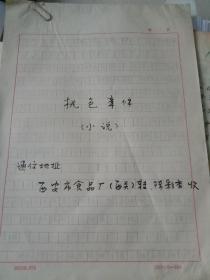 桃色事件
(小说)
通信地址
西安市食品厂(西关)转 收